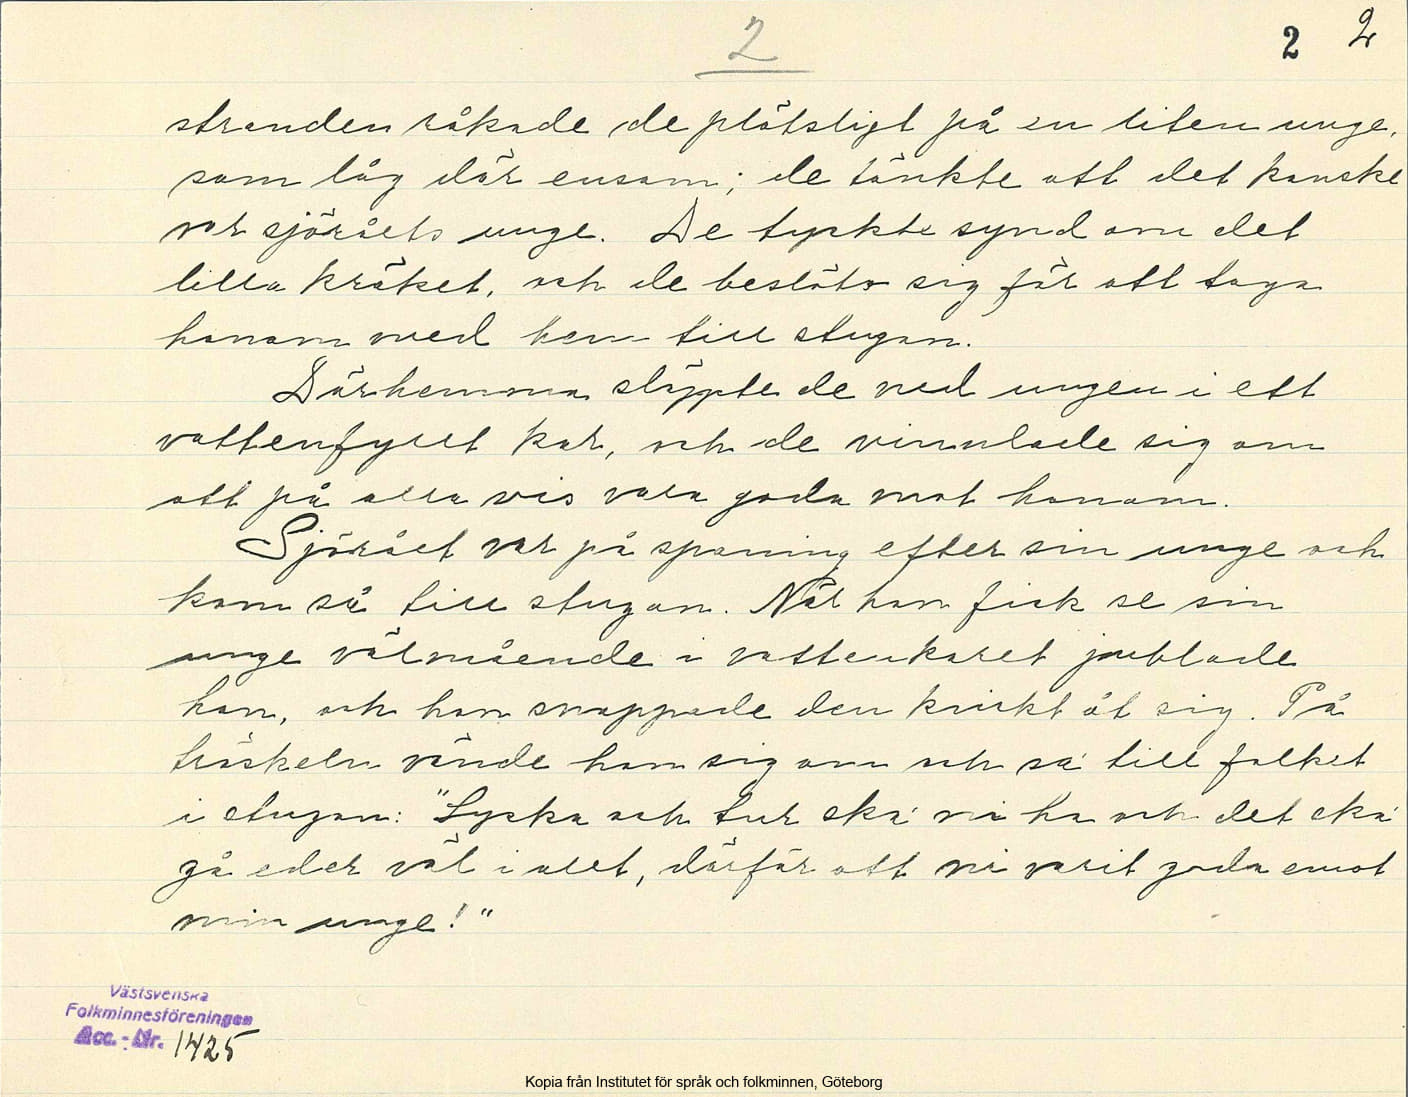 2
2 2
stranden råkade de plötsligt på en liten unge,
som låg där ensam; de tänkte att det kanske
var sjöråets unge. De tyckte synd om det
lilla kräket, och de beslöto sig för att taga
honom med hem till stugan.
Därhemma släppte de ned ungen i ett
vattenfyllt kar, och de vinnlade sig om
att på alla vis vara goda mot honom.
Sjörået var på spaning efter sin unge och
kom så till stugan. När han fick se sin
unge välmående i vattenkaret jublade
han, och han snappade den kvickt åt sig. På
tröskeln vände han sig om och sa' till folket
i stugan: "Lycka och tur ska' ni ha och det ska'
gå eder väl i allt, därför att ni varit goda emot
min unge!"
Västsvenska
Folkminnesföreningen
Acc. - Nr. 1425
Kopia från Institutet för språk och folkminnen, Göteborg